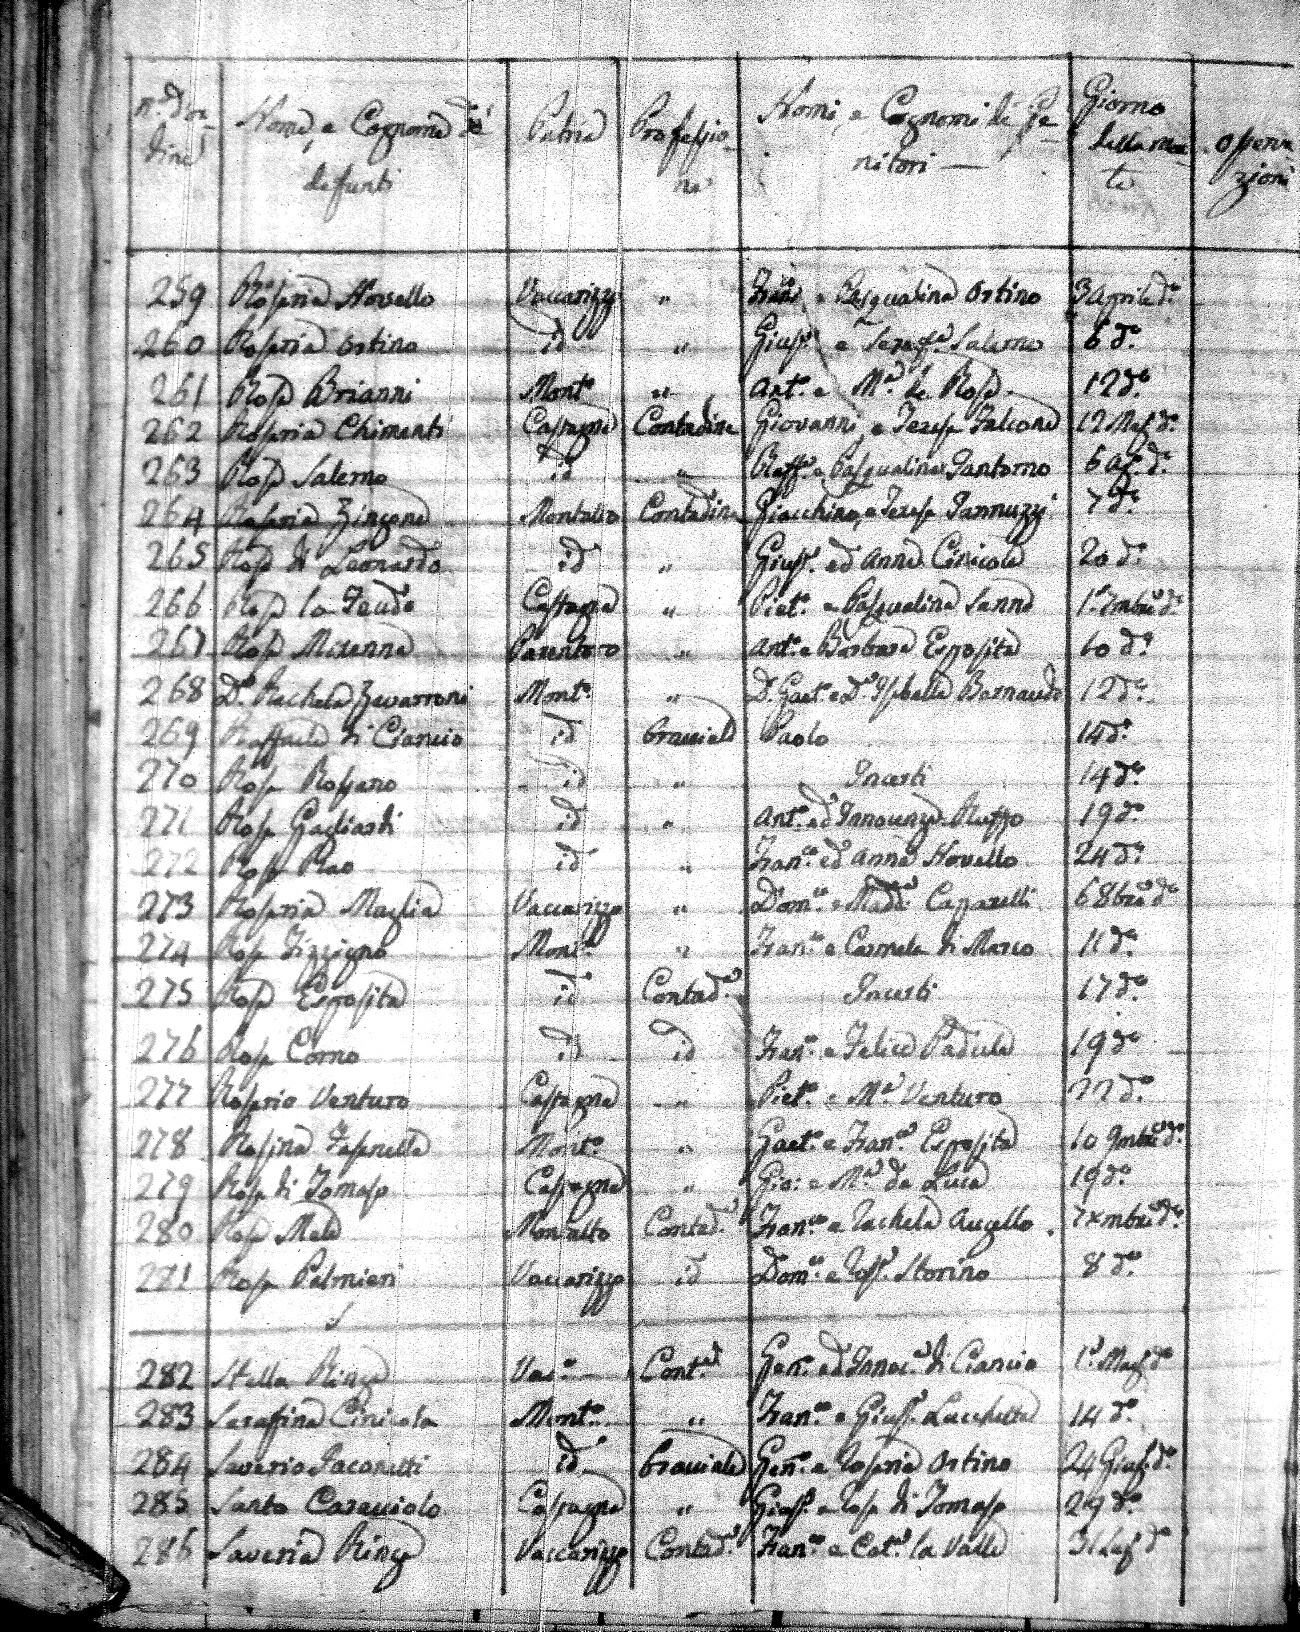 n.º d'or- Nome, e Cognome de' Patria Professio- Nomi, e Cognomi de' Ge- Giorno
dine defunti ne nitori — della mor- osserva
te zioni
259 Rosaria Novello Vaccarizzo " Fran.co e Pasqualina Ortino 3 Aprile d.º
260 Rosaria Ortino id " Gius.e e Seraf.a Salerno 6 d.º
261 Rosa Brianni Mont.º " Ant.º e M.a de Rose 12 d.º
262 Rosaria Chimenti Castagna Contadina Giovanni e Teresa Falcone 12 Mag. d.º
263 Rosa Salerno id " Raff.e e Pasqualina Santorno 6 ag. d.º
264 Rosaria Zingone Montalto Contadina Giacchino e Teresa Iannuzzi 7 d.º
265 Rosa di Leonardo id " Gius.e ed Anna Cinicola 20 d.º
266 Rosa lo Feudo Castagna " Piet.º e Pasqualina Sanno 1.º 7mbre d.º
267 Rosa Mirenna " Ant.º e Barbara Esposita 10 d.º
268 D.a Rachela Zavarroni Mont.º " D. Gaet.º e D.a Isabella Barnaudo 12 d.º
269 Raffaele di Ciancio id bracciale Paolo 14 d.º
270 Rosa Rossano id " Incerti 14 d.º
271 Rosa Gagliardi id " Ant.º ed Announz.a Ruffo 19 d.º
272 Rosa Rao id " Fran.co ed Anna Novello 24 d.º
273 Rosaria Maglia Vaccarizzo " Dom.co e Madd.a Caparelli 6 8bre d.º
274 Rosa Mont.º " Fran.co e Carmela di Marco 11 d.º
275 Rosa Esposita id Contad.a Incerti 17 d.º
276 Rosa Corno id id Fran.co e Felice Padula 19 d.º
277 Rosario Venturo Castagna " Piet.º e M.a Venturo 22 d.º
278 Rosina Fasanella Mont.º " Gaet.º e Fran.ca Esposita 10 9mbre d.º
279 Rosa di Tomaso Castagna " Gio: e M.a de Luca 19 d.º
280 Rosa Mele Montalto Contad.a Fran.co e Rachela Aucello 7 xmbre d.º
281 Rosa Palmieri Vaccarizzo id Dom.co e Ros.a Storino 8 d.º
S
282 Stella Rinza Vac.º Cont.a Gen.º ed Innoc.a di Ciancio 1.º Mag. d.º
283 Seraffina Cinicola Mont.º " Fran.co e Gius.a Lucchetta 14 d.º
284 Saverio Iaconetti id bracciale Gen.º e Rosaria Ortino 24 Giug. d.º
285 Santo Caracciolo Castagna " Gius.e e Rosa di Tomaso 29 d.º
286 Saveria Rinza Vaccarizzo Contad.a Fran.co e Cat.a la Valle 31 Lug. d.º